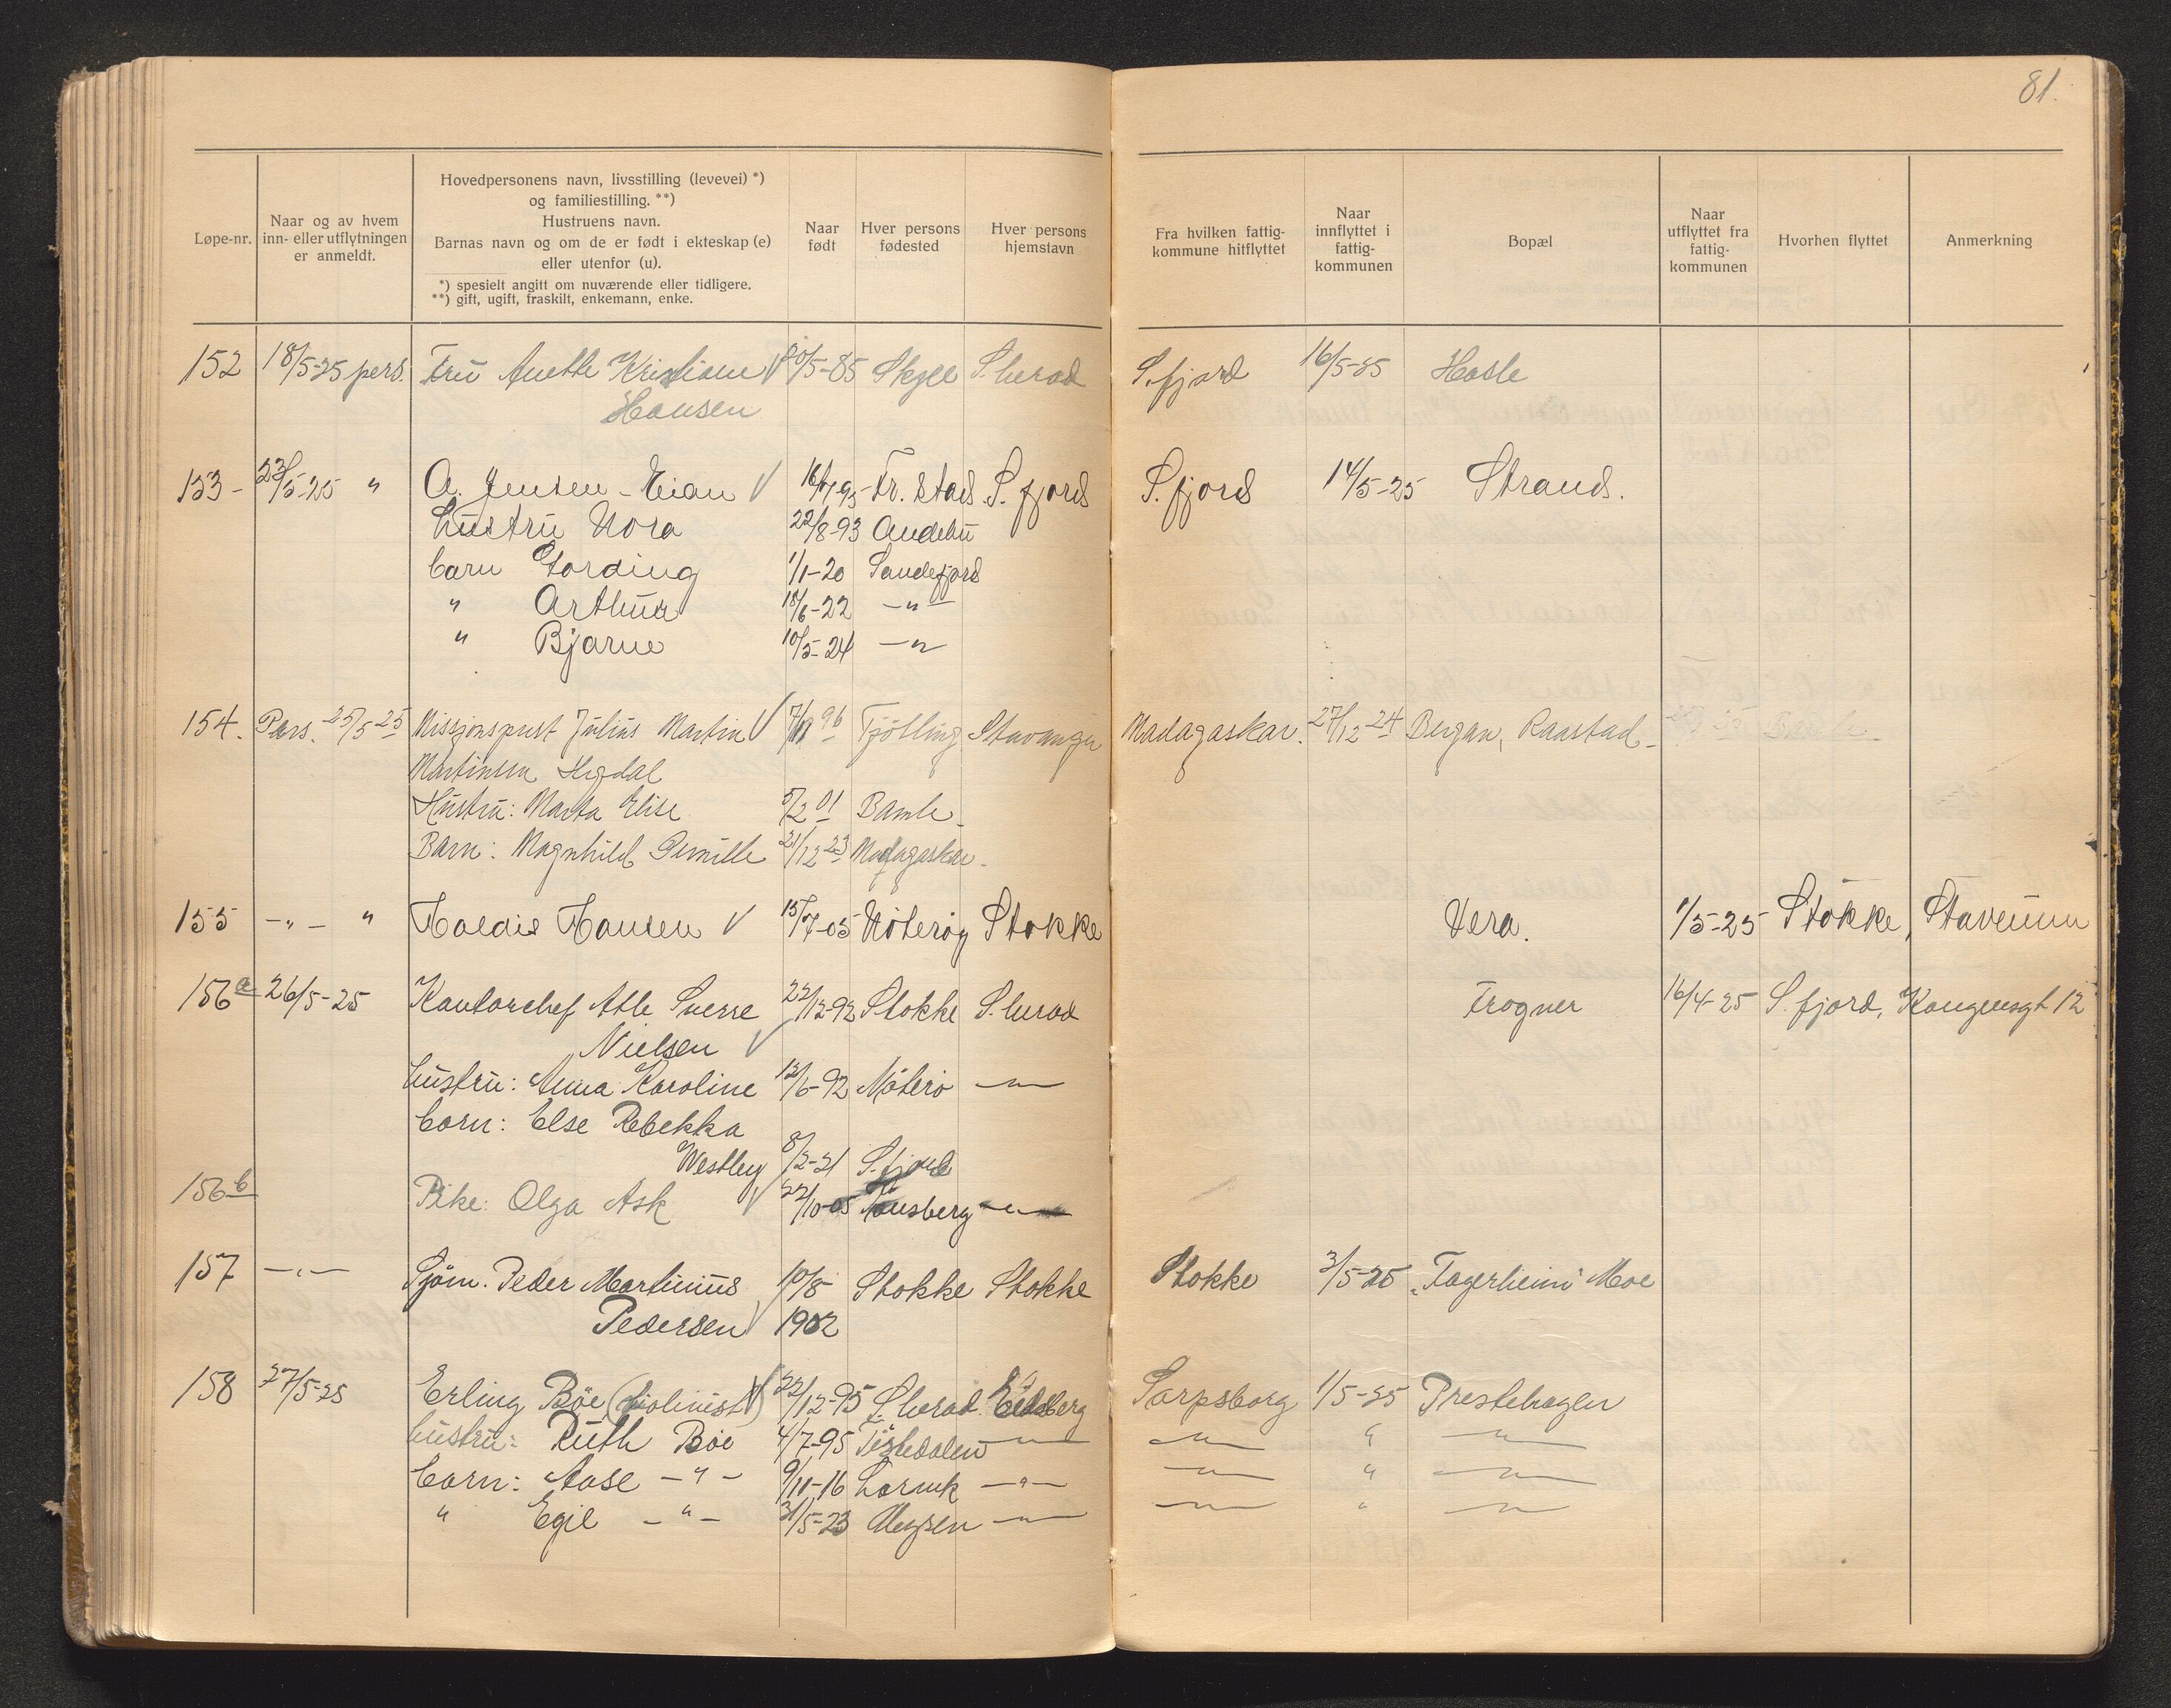 81.
Løpe-nr.
Naar og av hvem
inn- eller utflytningen
er anmeldt.
Hovedpersonens navn, livsstilling (levevei) *)
og familiestilling. **)
Hustruens navn.
Barnas navn og om de er født i ekteskap (e)
eller utenfor (u).
*) spesielt angitt om nuværende eller tidligere.
**) gift, ugift, fraskilt, enkemann, enke.
Naar
født
Hver persons
fødested
Hver persons
hjemstavn
Fra hvilken fattig-
kommune hitflyttet
Naar
innflyttet i
fattig-
kommunen
Bopæl
Naar
utflyttet fra
fattig-
kommunen
Hvorhen flyttet
Anmerkning
152 18/5-25 pers. Fru Anette Kristiane √ /5-85 Skjee S.herad S.fjord 16/5-25 Hasle
Hansen
153 - 23/5-25 " A. Jensen-Eian √ Fr.stad S.fjord S.fjord 14/5-25 Strand.
hustru Nora 22/8-93 Andebu
barn Gording 1/1-20 Sandefjord
" Arthur 18/6-22 -"-
" Bjarne 10/5-24 -"
154. Pers. 25/5 25 Missjonsprest Julius Martin √ 96 Tjölling Stavanger Madagaskar. 27/12 24 Bergan, Raastad
Martinsen Hegdal
Hustru: Marta Elise 5/2 01 Bamle
Barn: Magnhild Pernille 21/12 23 Madagaskar
155 -"- " Haldis Hansen √ 15/7-05 Nöteröy Stokke Vera. 1/5-25 Stokke, Staveum
156a 26/5-25 Kontorchef Atle Sverre 22/12-92 Stokke S.herad Frogner 16/4-25 S.fjord, Kongensgt 12
Nielsen √
hustru: Anna Karoline 12/6-92 Nöterö -"-
barn: Else Rebekka
Westley 8/2-21 S.fjord
156b Pike: Olga Ask √ 22/10-05 Tönsberg -"-
157 -"- Sjöm. Peder Martinius 10/8 Stokke Stokke Stokke 3/5-25 "Fagerheim" Moe
Pedersen √ 1902
158 27/5-25 Erling Böe (violinist) √ 22/12-95 S.herad Eidsberg Sarpsborg 1/5-25 Prestehagen
hustru: Ruth Böe 4/7-95 Tistedalen -"- -"- " -"-
barn: Aase -"- 9/11-16 Larvik -"- -"- " -"-
" Egil -"- 31/5-23 Mysen -"- -"- " -"-